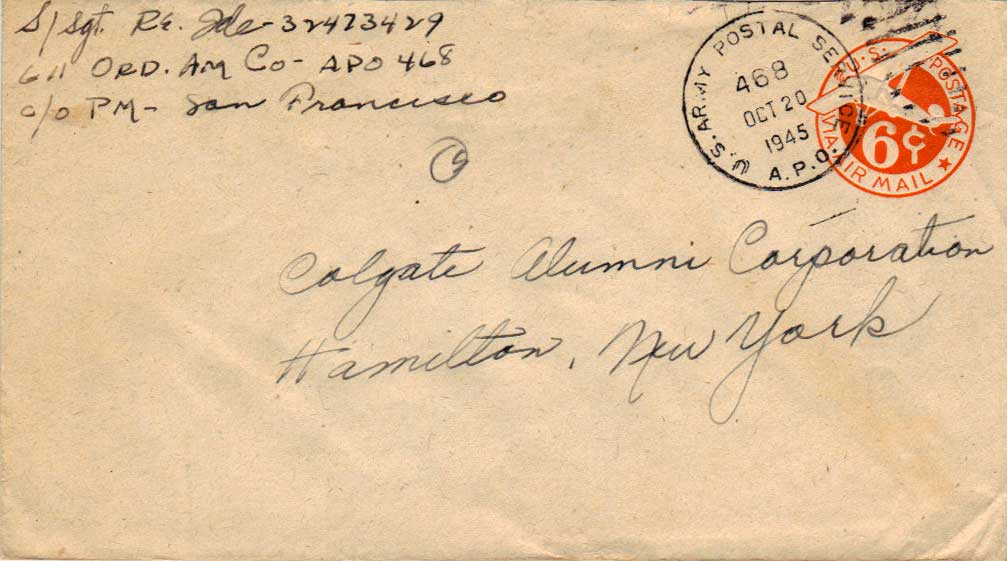 S/Sgt. R.E. Ide - 32473429
611 ORD. AM Co - APO 468
c/o PM - San Francisco
U.S. ARMY POSTAL SERVICE
468
OCT 20
1945
A.P.O.
U.S. POSTAGE
6¢
VIA AIR MAIL
Colgate Alumni Corporation
Hamilton, New York